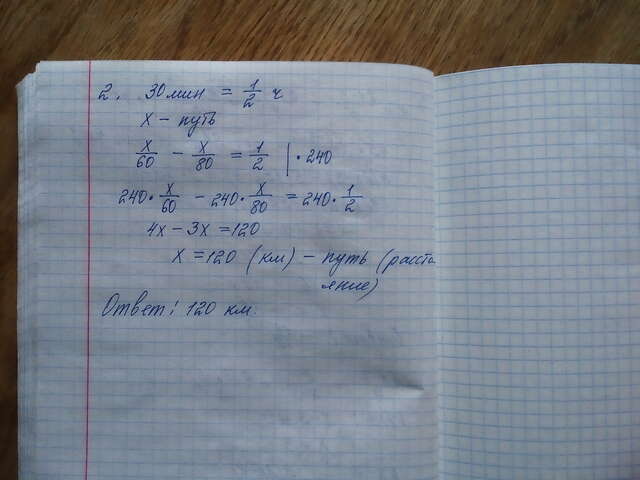 2. 30 мин = 1/2 ч
x – путь
x/60 – x/80 = 1/2 | · 240
240 · x/60 – 240 · x/80 = 240 · 1/2
4x – 3x = 120
x = 120 (км) – путь (расстояние)
Ответ: 120 км.